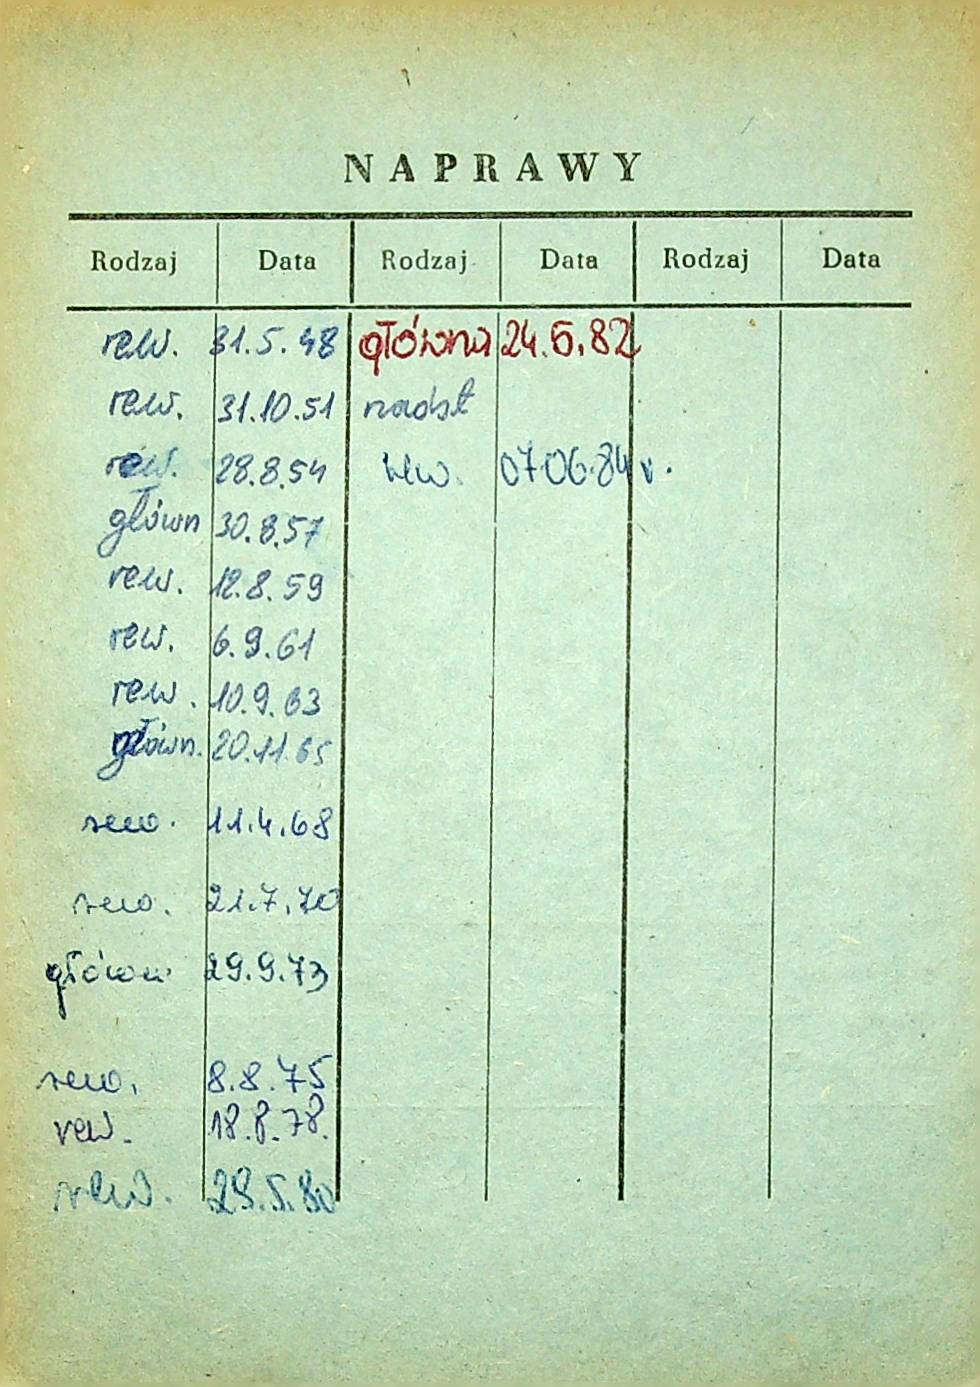 NAPRAWY
Rodzaj Data Rodzaj Data Rodzaj Data
rew. 31.5.48 główna 24.5.82
rew. 31.10.51 nadst
rew. 28.8.54 rew. 07.06.84 r.
główn 30.8.57
rew. 12.8.59
rew. 6.9.61
rew. 10.9.63
główn. 20.11.65
rew. 11.4.68
rew. 21.7.70
główn 29.9.73
rew. 8.8.75
rew. 18.8.78.
rew. 29.5.80